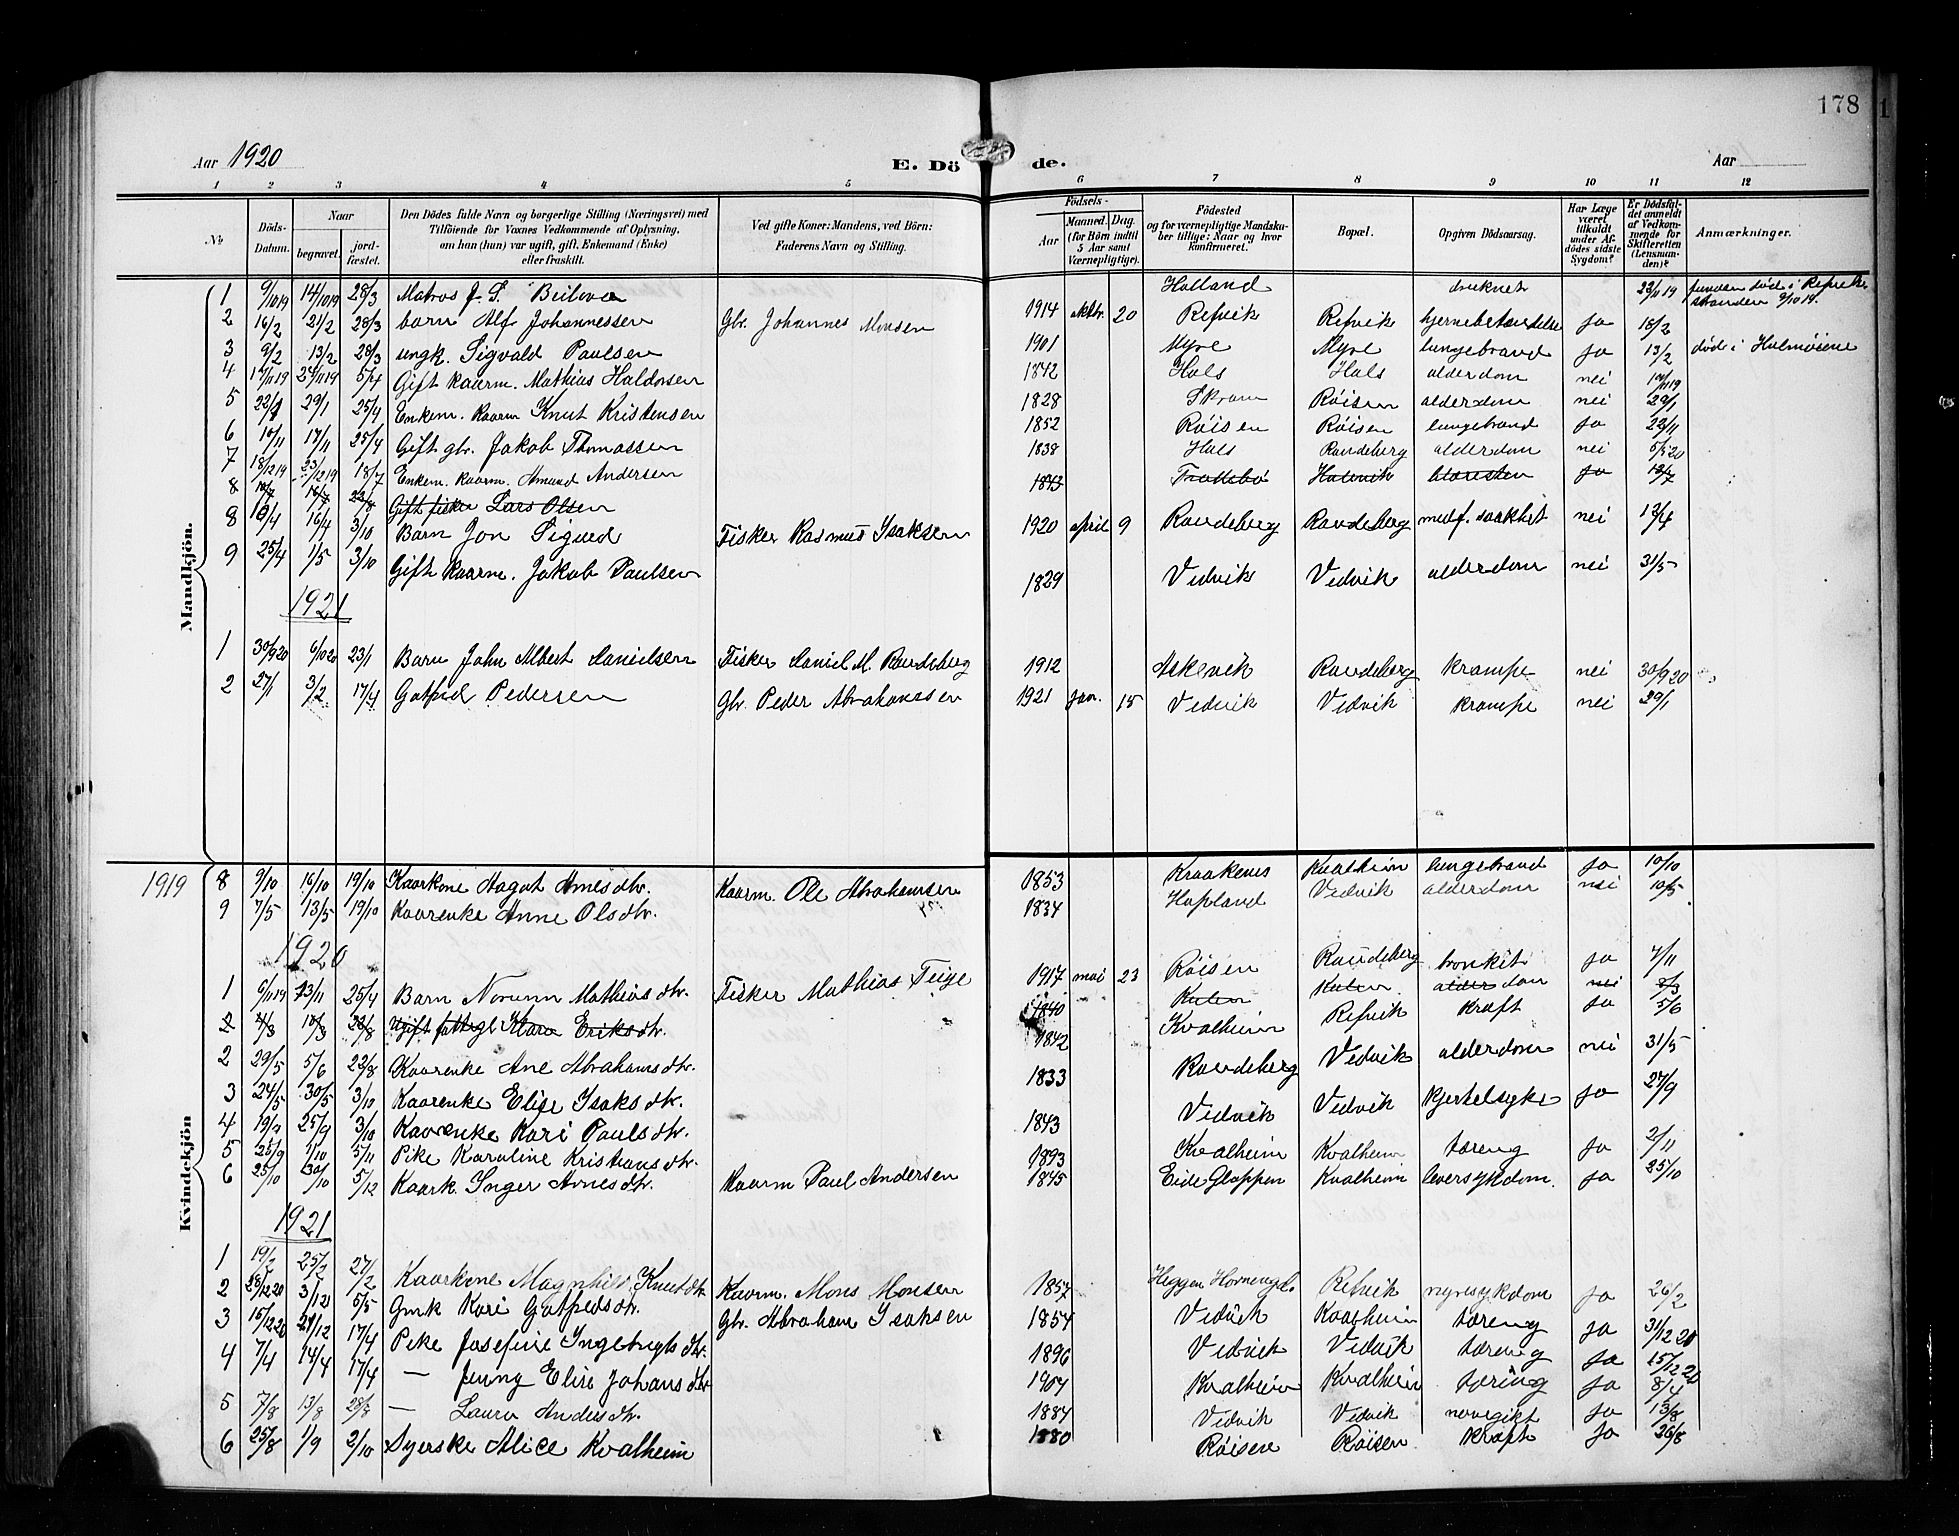 178
Aar 1920 E. Dö de. Aar
1 2 3 4 5 6 7 8 9 10 11 12
№ Döds-Datum. Naar begravet. jordfæstet. Den Dödes fulde Navn og borgerlige Stilling (Næringsvei) med Tilföiende for Voxnes Vedkommende af Oplysning, om han (hun) var ugift, gift, Enkemand (Enke) eller fraskilt. Ved gifte Koner: Mandens, ved Börn: Faderens Navn og Stilling. Födsels- Aar Maaned. Dag. (for Börn indtil 5 Aar samt Værnepligtige). Födested og for værnepligtige Mandskaber tillige: Naar og hvor konfirmeret. Bopæl. Opgiven Dödsaarsag. Har Læge været tilkaldt under Afdödes sidste Sygdom? Er Dödsfaldet anmeldt af Vedkommende for Skifteretten (Lensmanden)? Anmærkninger.
Mandkjön.
1 9/10 19 14/10 19 28/3 Matros J. S. Holland druknet 22/11 19 funden død i Refviks stranden 9/10 19.
2 16/2 21/2 28/3 barn Alf Johannessen Gbr. Johannes Monsen 1914 oktbr. 20 Refvik Refvik hjernebetændelse ja 18/2
3 9/2 13/2 28/3 ungk. Sigvald Paulsen 1901 Myre Myre lungebrand ja 13/2 døde i Holmøiene
4 17/11 19 24/11 19 5/4 Gift kaarm. Mathias Haldorsen 1842 Hals Hals alderdom nei
5 22/1 29/1 25/4 Enkem. kaarm Knut Kristensen 1828 Skram Røisen alderdom nei 29/1
6 10/11 17/11 25/4 Gift gbr. Jakob Thomassen 1852 Røisen Røisen lungebrand ja 22/11
7 18/12 19 23/12 19 18/7 Enkem. kaarm. Amund Andersen 1838 Hals Raudeberg alderdom nei 5/1 20
8 10/7 16/7 22/8 Gift fisker Lars Olsen 1843 Trollebø Halsvik blæresten ja 12/7
8 10/4 16/4 3/10 Barn Jon Sigurd Fisker Rasmus Isaksen 1920 april 9 Raudeberg Raudeberg medf. svakhet nei 12/4
9 25/4 1/5 3/10 Gift kaarm. Jakob Paulsen 1829 Vedvik Vedvik alderdom nei 31/5
1921
1 30/9 20 6/10 20 23/1 Barn John Albert Danielsen Fisker Daniel M. Raudeberg 1912 Askevik Raudeberg krampe nei 30/9 20
2 27/1 3/2 17/4 Gotfred Pedersen Gbr. Peder Abrahamsen 1921 jan. 15 Vedvik Vedvik krampe nei 29/1
1919
8 9/10 16/10 19/10 Kaarkone Hagat Arnesdtr. Kaarm. Ole Abrahamsen 1853 Kraakenes Kvalheim lungebrand ja 10/10
9 7/5 13/5 19/10 Kaarenke Anne Olsdtr. 1834 Hopland Vedvik alderdom nei 10/5
1920
Kvindekjön
1 6/11 19 13/11 25/4 Barn Norunn Mathiasdtr. Fisker Mathias Teige 1917 mai 23 Røisen Raudeberg bronkit ja 7/11
2 4/3 10/3 22/8 Ugift fattigl Klara Eriksdtr. 1840 Kulen Kulen alderdom nei 8/3
2 29/5 5/6 22/8 Kaarenke Ane Abrahamsdtr. 1842 Kvalheim Refvik kræft ja 5/6
3 24/5 30/5 3/10 Kaarenke Elise Isaksdtr. 1833 Raudeberg Vedvik alderdom nei 31/5
4 19/9 25/9 3/10 Kaarenke Kari Paulsdtr. 1843 Vedvik Vedvik kjertelsyke ja 27/9
5 25/9 1/10 5/11 Pike Karoline Kristiansdtr. 1893 Kvalheim Kvalheim tæring ja 2/11
6 25/10 30/10 5/12 Kaark. Inger Arnesdtr. Kaarm Paul Andersen 1845 Eide Gloppen Kvalheim leversykdom. ja 25/10
1921
1 19/2 25/2 27/2 Kaarkone Magnhild Knutsdtr Kaarm. Mons Monsen 1857 Heggen Hornengdl. Refvik nyresykdom ja 26/2
2 28/12 20 3/1 21 5/5 Gmk Kari Gotfredsdtr. Gbr. Abraham Isaksen 1854 Vedvik Kvalheim tæring ja 31/12 20
3 15/12 20 21/12 17/4 Pike Josefine Ingebrigtsdtr. 1896 Vedvik Vedvik tæring ja 15/12 20
4 7/4 14/4 17/4 — Jenny Elise Johansdtr 1907 Kvalheim Kvalheim tæring ja 8/4
5 7/8 13/8 28/8 — Laura Andersdtr. 1884 Vedvik Vedvik nervegikt ja 13/8
6 25/8 1/9 2/10 Syerske Alice Kvalheim 1880 Røisen Røisen kræft ja 26/8